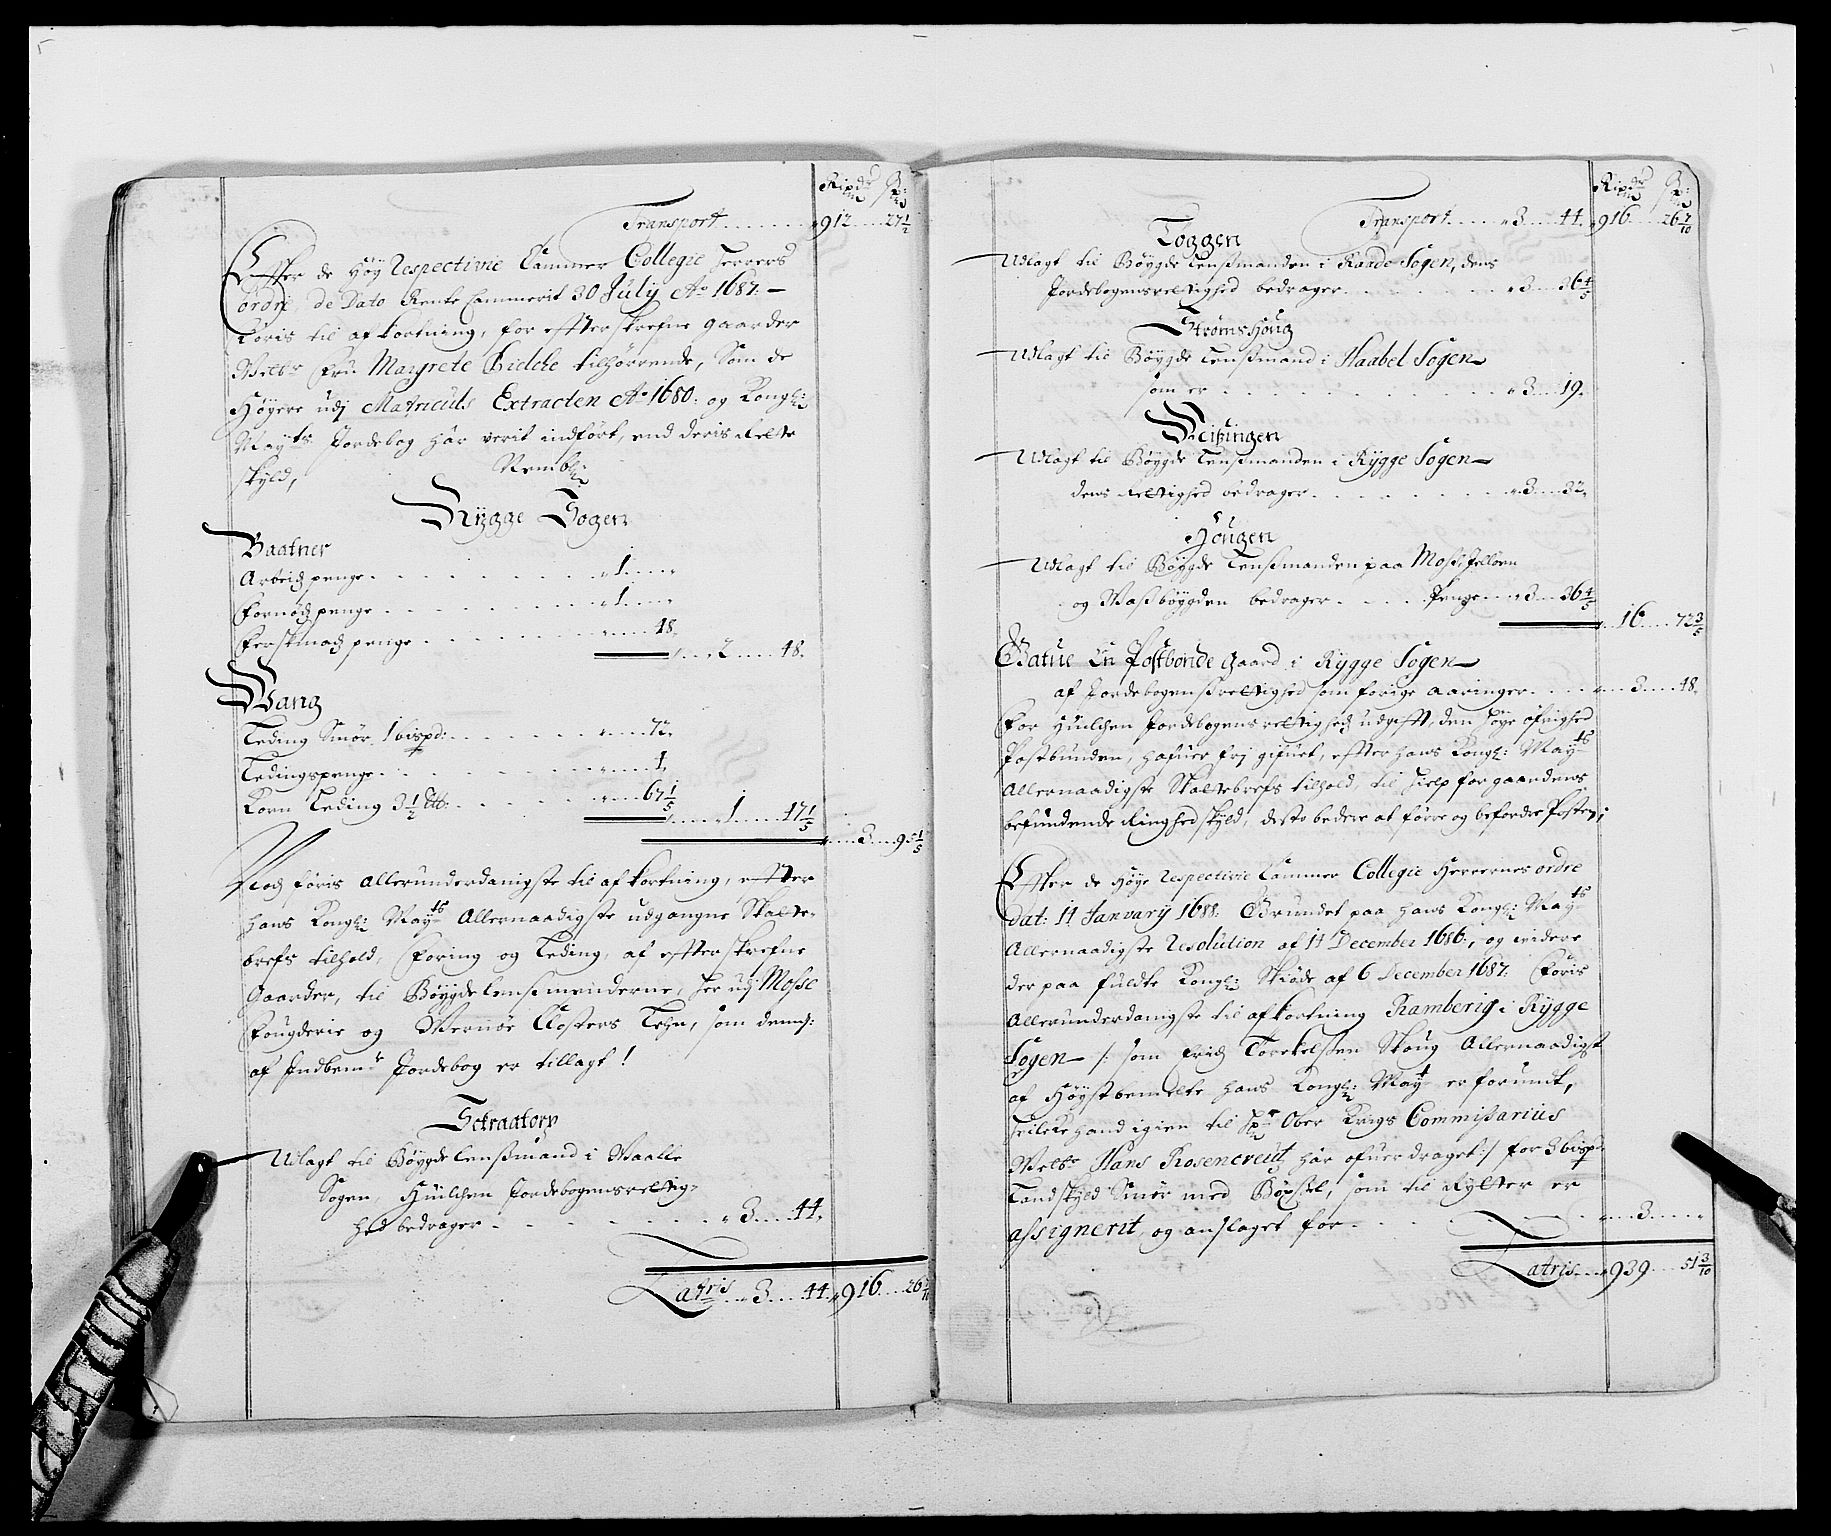 Ripdr ß:
Transport ........ 912 .... 27 1/2
Effter de Høy Respectivie Cammer Collegie Herrers
ordre, de Dato Rente Cammerit 30 July Ao 1687: –
Føris til afkortning, for effterskrefne gaarder
Welbr Fru Margrete Bielche tilhørrende, Som de
Høyere udj Matriculs Extracten Ao 1680: og Kongl:
Mayts Jordebog har verit indført, end deris Rette
skyld, Nembl:
Rygge Sogen
Baatner
Arbeidspenge . . . . . . 1 .... „
Fornødspenge . . . . . . 1 .... „
Ferskmadspenge . . . . . . 48„
2 ..... 48„
Wang
Leding Smør 1 bispd: . . . . . 72„
Ledingspenge . . . . . . 1„
Korn Leding 3 1/2 Stt: . . . . . 67 1/5
1 ..... 47 1/5
3 .... 95 1/5
Nock føris allerunderdanigste til afkortning, effter
hans Kongl: Mayts Allernaadigste udgangne Skatte-
brefs tilhold, Foring og Leding, af effterskrefne
Gaarder, til Bøygdelensmenderne, her udj Mosse
Fougderie og Wernøe Closters Lehn, som denem:
af Indbemte Jordebog er tillagt!
Schraatorp
Udlagt til Bøygdelensmand i Waalle
Sogen, Huilchen Jordebogens rettig-
hed bedrager . . . . . . „ 3 .... 44„
Latris „ 3 .... 44„ 916 .... 26 7/10
Ripdr ß:
Transport ..... „ 3 ..... 44„ 916 ..... 26 7/10
Toggen
Udlagt til Bøygdelensmanden i Raade Sogen, dens
Jordebogensrettighed bedrager . . . . . . „ 3 .... 36 4/5
Strømshoug
Udlagt til Bøygdelensmand i Haabel Sogen
som er . . . . . . . . „ 3 .... 19„
Reitzingen
Udlagt til Bøygdelensmanden i Rygge Sogen
dens Rettighed bedrager . . . . . . „ 3 .... 32„
Hougen
Udlagt til Bøygdelensmanden paa Moss, Jelløen
og Wassbøygden bedrager . . . . Penge „ 3 .... 36 4/5
16 .... 72 3/5
Batue En Postbonde gaard i Rygge Sogen
af Jordebogensrettighed som forige aaringer . . . . 3 .... 48„
For Huilchen Jordebogensrettigheds udgifft, den høye øfrighed
Postbunden, hafuer frj gifuet, effter hans Kongl: Mayts
Allernaadigste Skattebrefs tilhold, til hielp for gaardens
befundende Ringhed skyld, desto bedere at føre og befordre Posten;
Effter de Høye Respectivie Cammer Collegie Herrernes ordre
dat: 14 January 1688. Grundet paa hans Kongl: Mayts
Allernaadigste Resolution af 14 December 1686:, og videre
der paa fuldte Kongl: Skiøde af 6 December 1687. Føris
Allerunderdanigste til afkortning Ramberig i Rygge
Sogen /: som Frid Torkelssen Skoug Allernaadigst
af Høystbemelte hans Kongl: Mayt er forundt,
huilche hand igien til Hr Ober Krigs Commissarius
Welbr Hans Rosencreut har ofuerdraget :/ for 3 bispd:
Landskyld Smør med Bøxsel, som til Rytter er
assignerit, og anslaget for . . . . . . 3 ..... „
Latris 939 ..... 51 3/10